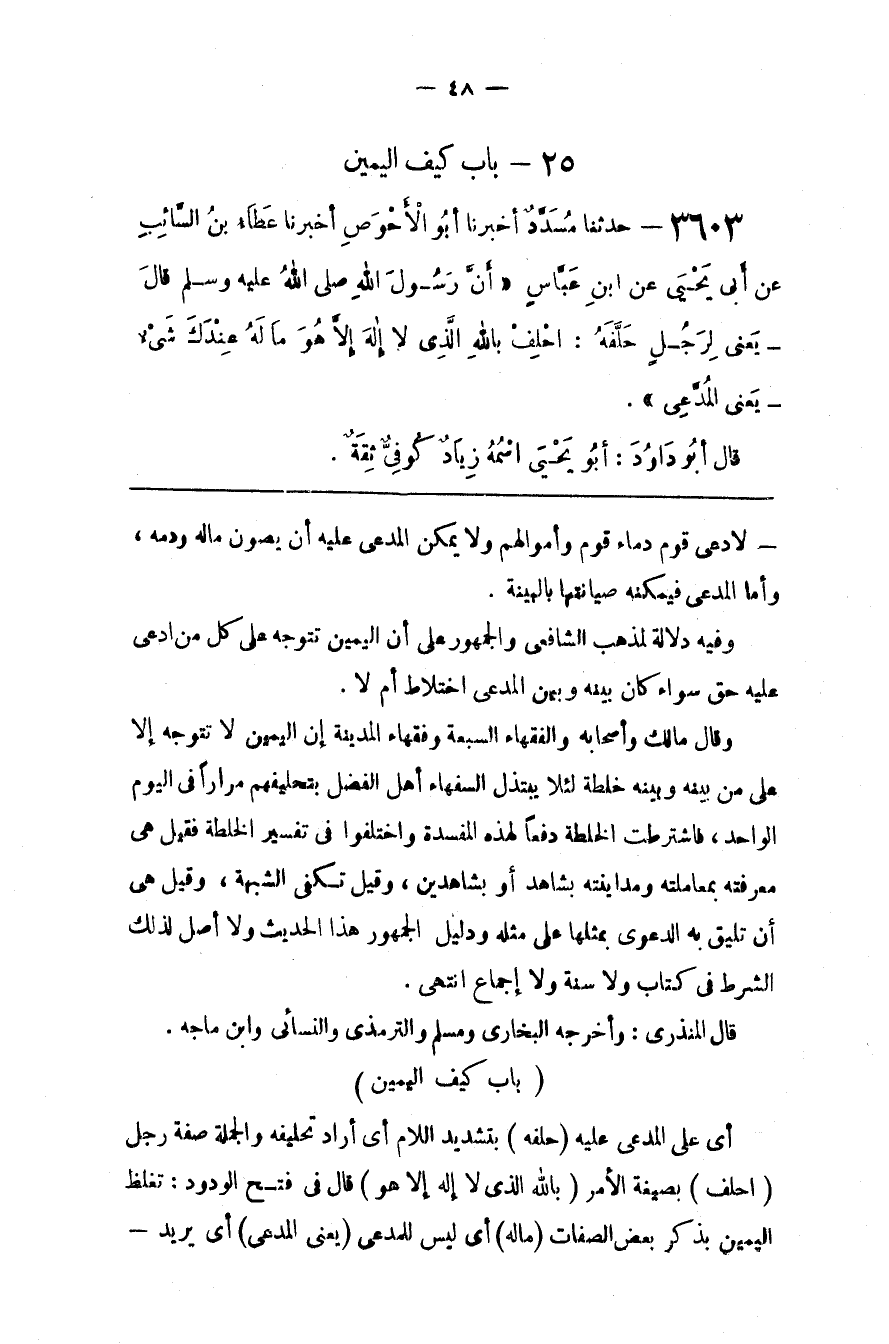 — ٤٨ —
٢٥ — باب كيف اليمين
٣٦٠٣ — حدثنا مُسَدَّدٌ أخبرنا أبُو الْأَحْوَصِ أخبرنا عَطَاءُ بنُ السَّائِبِ
عن أَبى يَحْيَى عن ابنِ عَبَّاسٍ « أَنَّ رَسُولَ اللهِ صلى اللهُ عليه وسلم قالَ
ـ يَعنى لِرَجُلٍ حَلَّفَهُ : احْلِفْ باللهِ الَّذِى لا إِلٰهَ إِلاَّ هُوَ مَا لَهُ عِنْدَكَ شَىْءٌ
ـ يَعنى المُدَّعِى » .
قال أبُو دَاوُدَ : أبُو يَحْيَى اسْمُهُ زِيَادٌ كُوفِىٌّ ثِقَةٌ .
— لادعى قوم دماء قوم وأموالهم ولا يمكن المدعى عليه أن يصون ماله ودمه ،
وأما المدعى فيمكنه صيانتها بالبينة .
وفيه دلالة لمذهب الشافعى والجمهور على أن اليمين تتوجه على كل من ادعى
عليه حق سواء كان بينه وبين المدعى اختلاط أم لا .
وقال مالك وأصحابه والفقهاء السبعة وفقهاء المدينة إن اليمين لا تتوجه إلا
على من بينه وبينه خلطة لئلا يبتذل السفهاء أهل الفضل بتحليفهم مراراً فى اليوم
الواحد ، فاشترطت الخلطة دفعاً لهذه المفسدة واختلفوا فى تفسير الخلطة فقيل هى
معرفته بمعاملته ومداينته بشاهد أو بشاهدين ، وقيل تكفى الشبهة ، وقيل هى
أن تليق به الدعوى بمثلها على مثله ودليل الجمهور هذا الحديث ولا أصل لذلك
الشرط فى كتاب ولا سنة ولا إجماع انتهى .
قال المنذرى : وأخرجه البخارى ومسلم والترمذى والنسائى وابن ماجه .
( باب كيف اليمين )
أى على المدعى عليه (حلفه ) بتشديد اللام أى أراد تحليفه والجملة صفة رجل
( احلف ) بصيغة الأمر ( بالله الذى لا إله إلا هو ) قال فى فتح الودود : تغلظ
اليمين بذكر بعض الصفات (ماله) أى ليس للمدعى (يعنى المدعى) أى يريد —